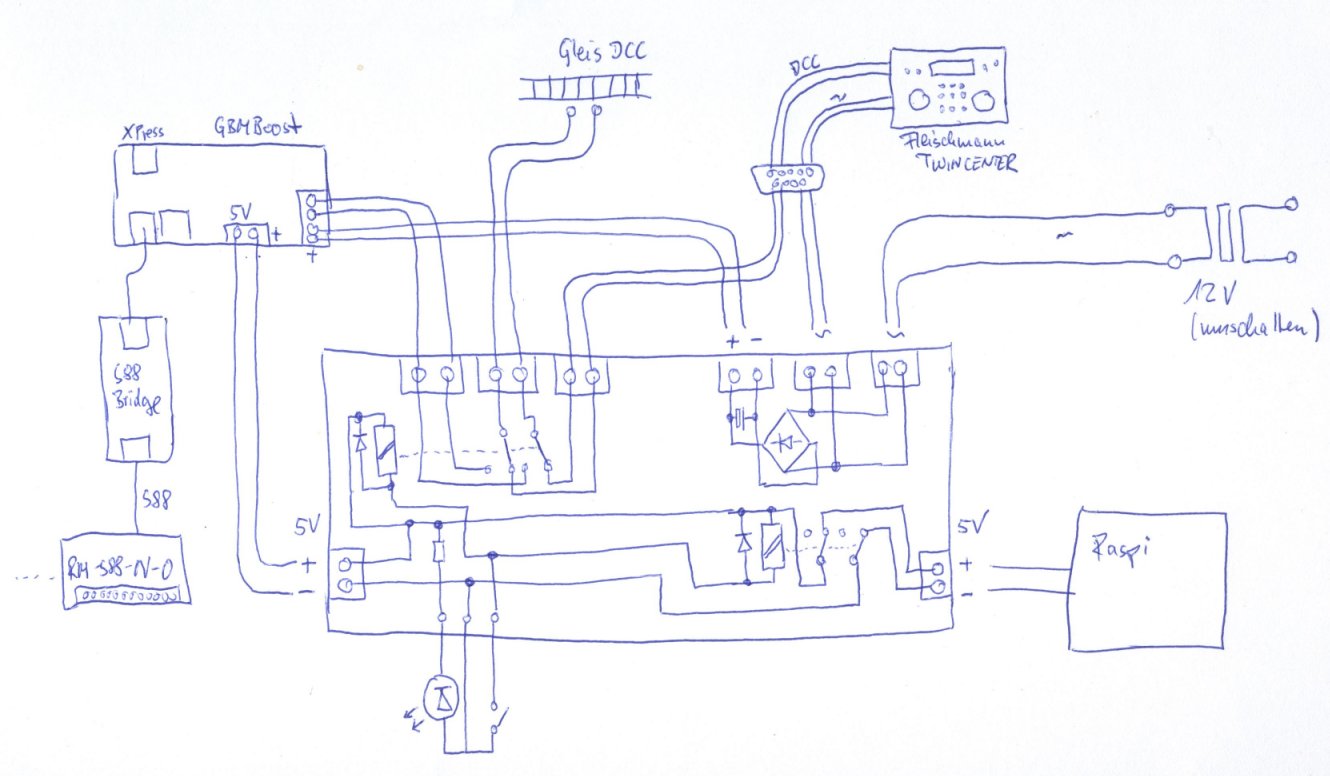 Gleis DCC
DCC
~
Fleischmann
TWINCENTER
XPress
GBMBoost
5V
+
+
~
12V
(umschalten)
+ -
~
~
S88
Bridge
S88
RM-S88-N-O
5V
+
-
5V
+
-
Raspi